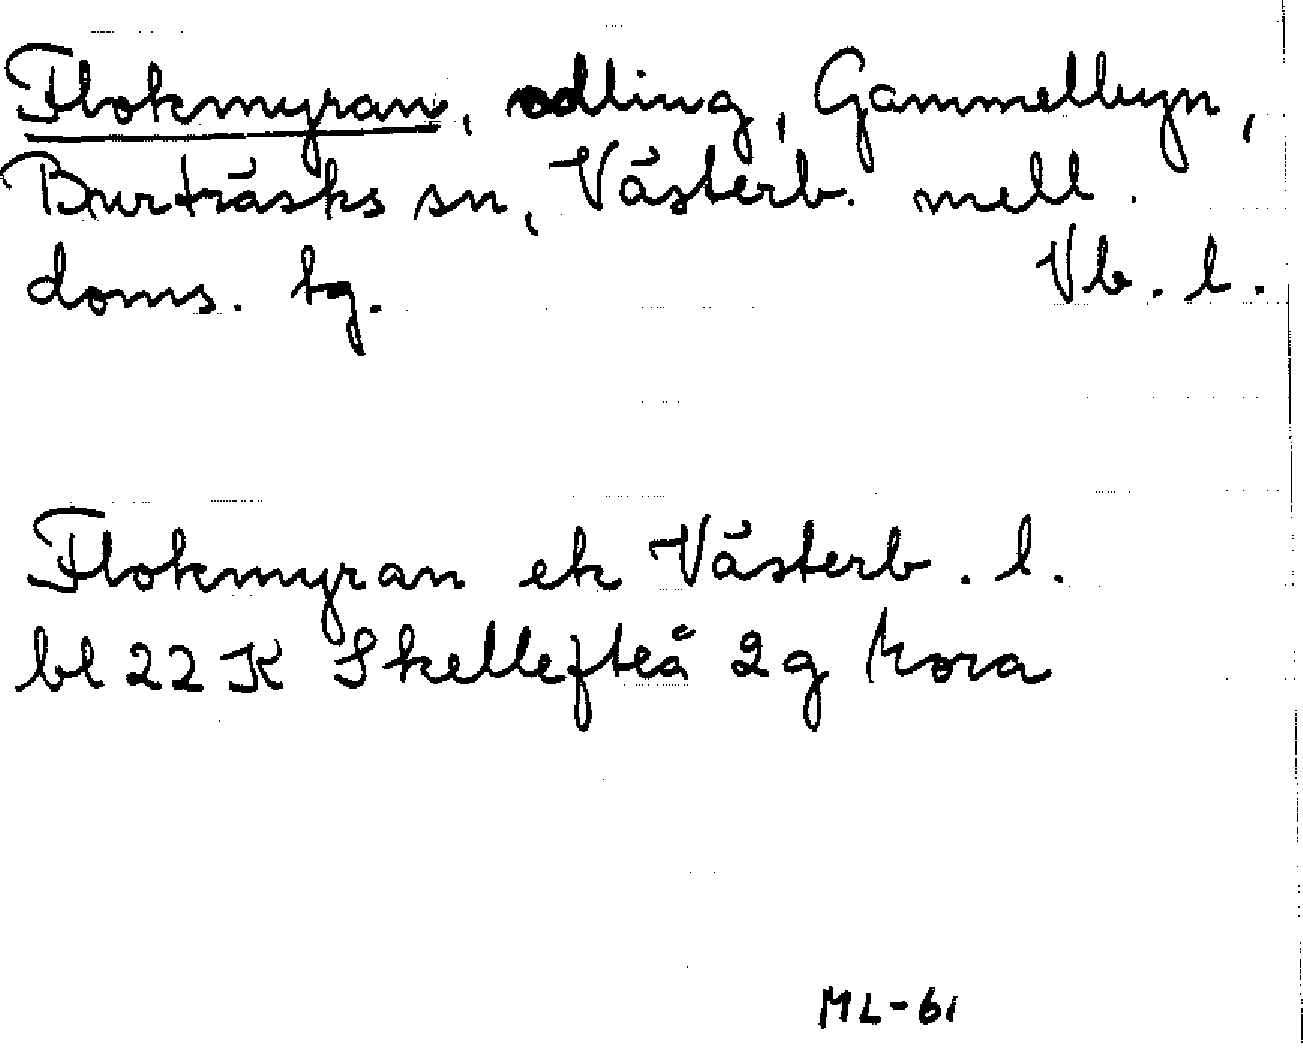 Flokmyran, odling, Gammelbyn,
Burträsks sn, Västerb. mell.
doms. tg. Vb. l.
Flokmyran ek Västerb. l.
bl 22 K Skellefteå 2g Mora
ML-61